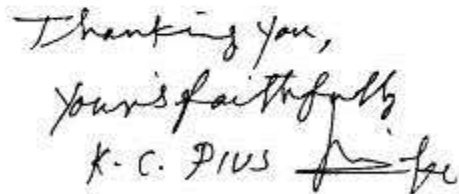 Thanking you,
Your's faithfully
K. C. PIUS